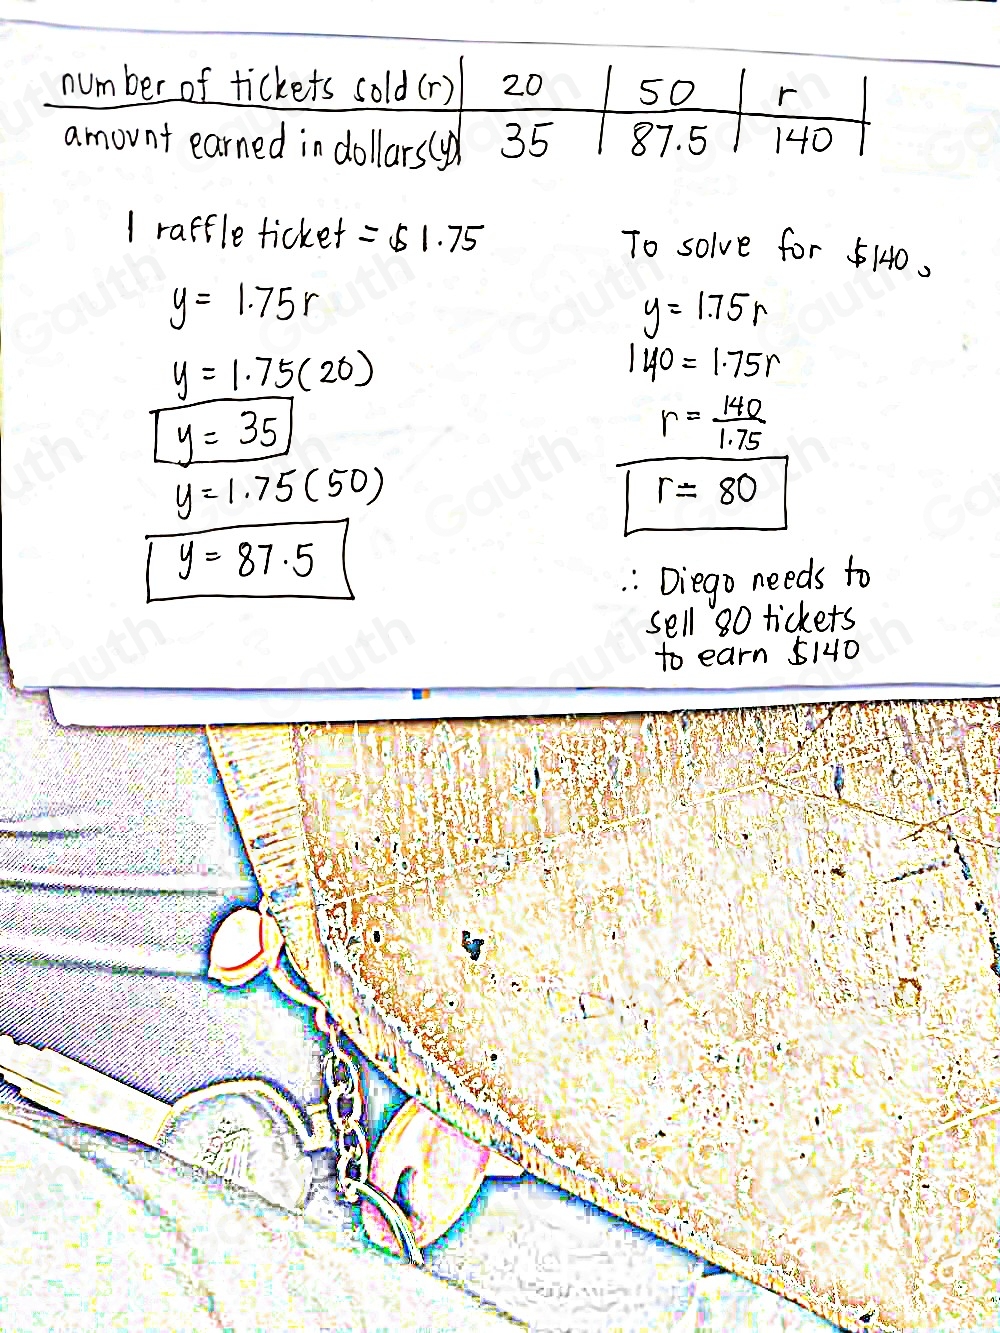 number of tickets sold (r) 20 50 r
amount earned in dollars(y) 35 87.5 140
1 raffle ticket = $1.75
y = 1.75r
y = 1.75(20)
y = 35
y = 1.75(50)
y = 87.5
To solve for $140,
y = 1.75r
140 = 1.75r
r = 140/1.75
r = 80
∴ Diego needs to
sell 80 tickets
to earn $140
Gauth